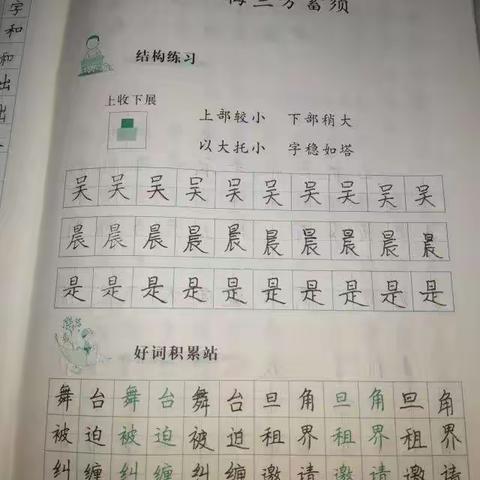 字
和
和
出
结构练习
上收下展
上部较小 下部稍大
以大托小 字稳如塔
吴吴吴吴吴吴吴吴吴吴
晨晨晨晨晨晨晨晨晨晨
是是是是是是是是是是
好词积累站
舞台舞台舞台旦角旦角旦角
被迫被迫被迫租界租界租界
纠缠纠缠纠缠邀请邀请邀请